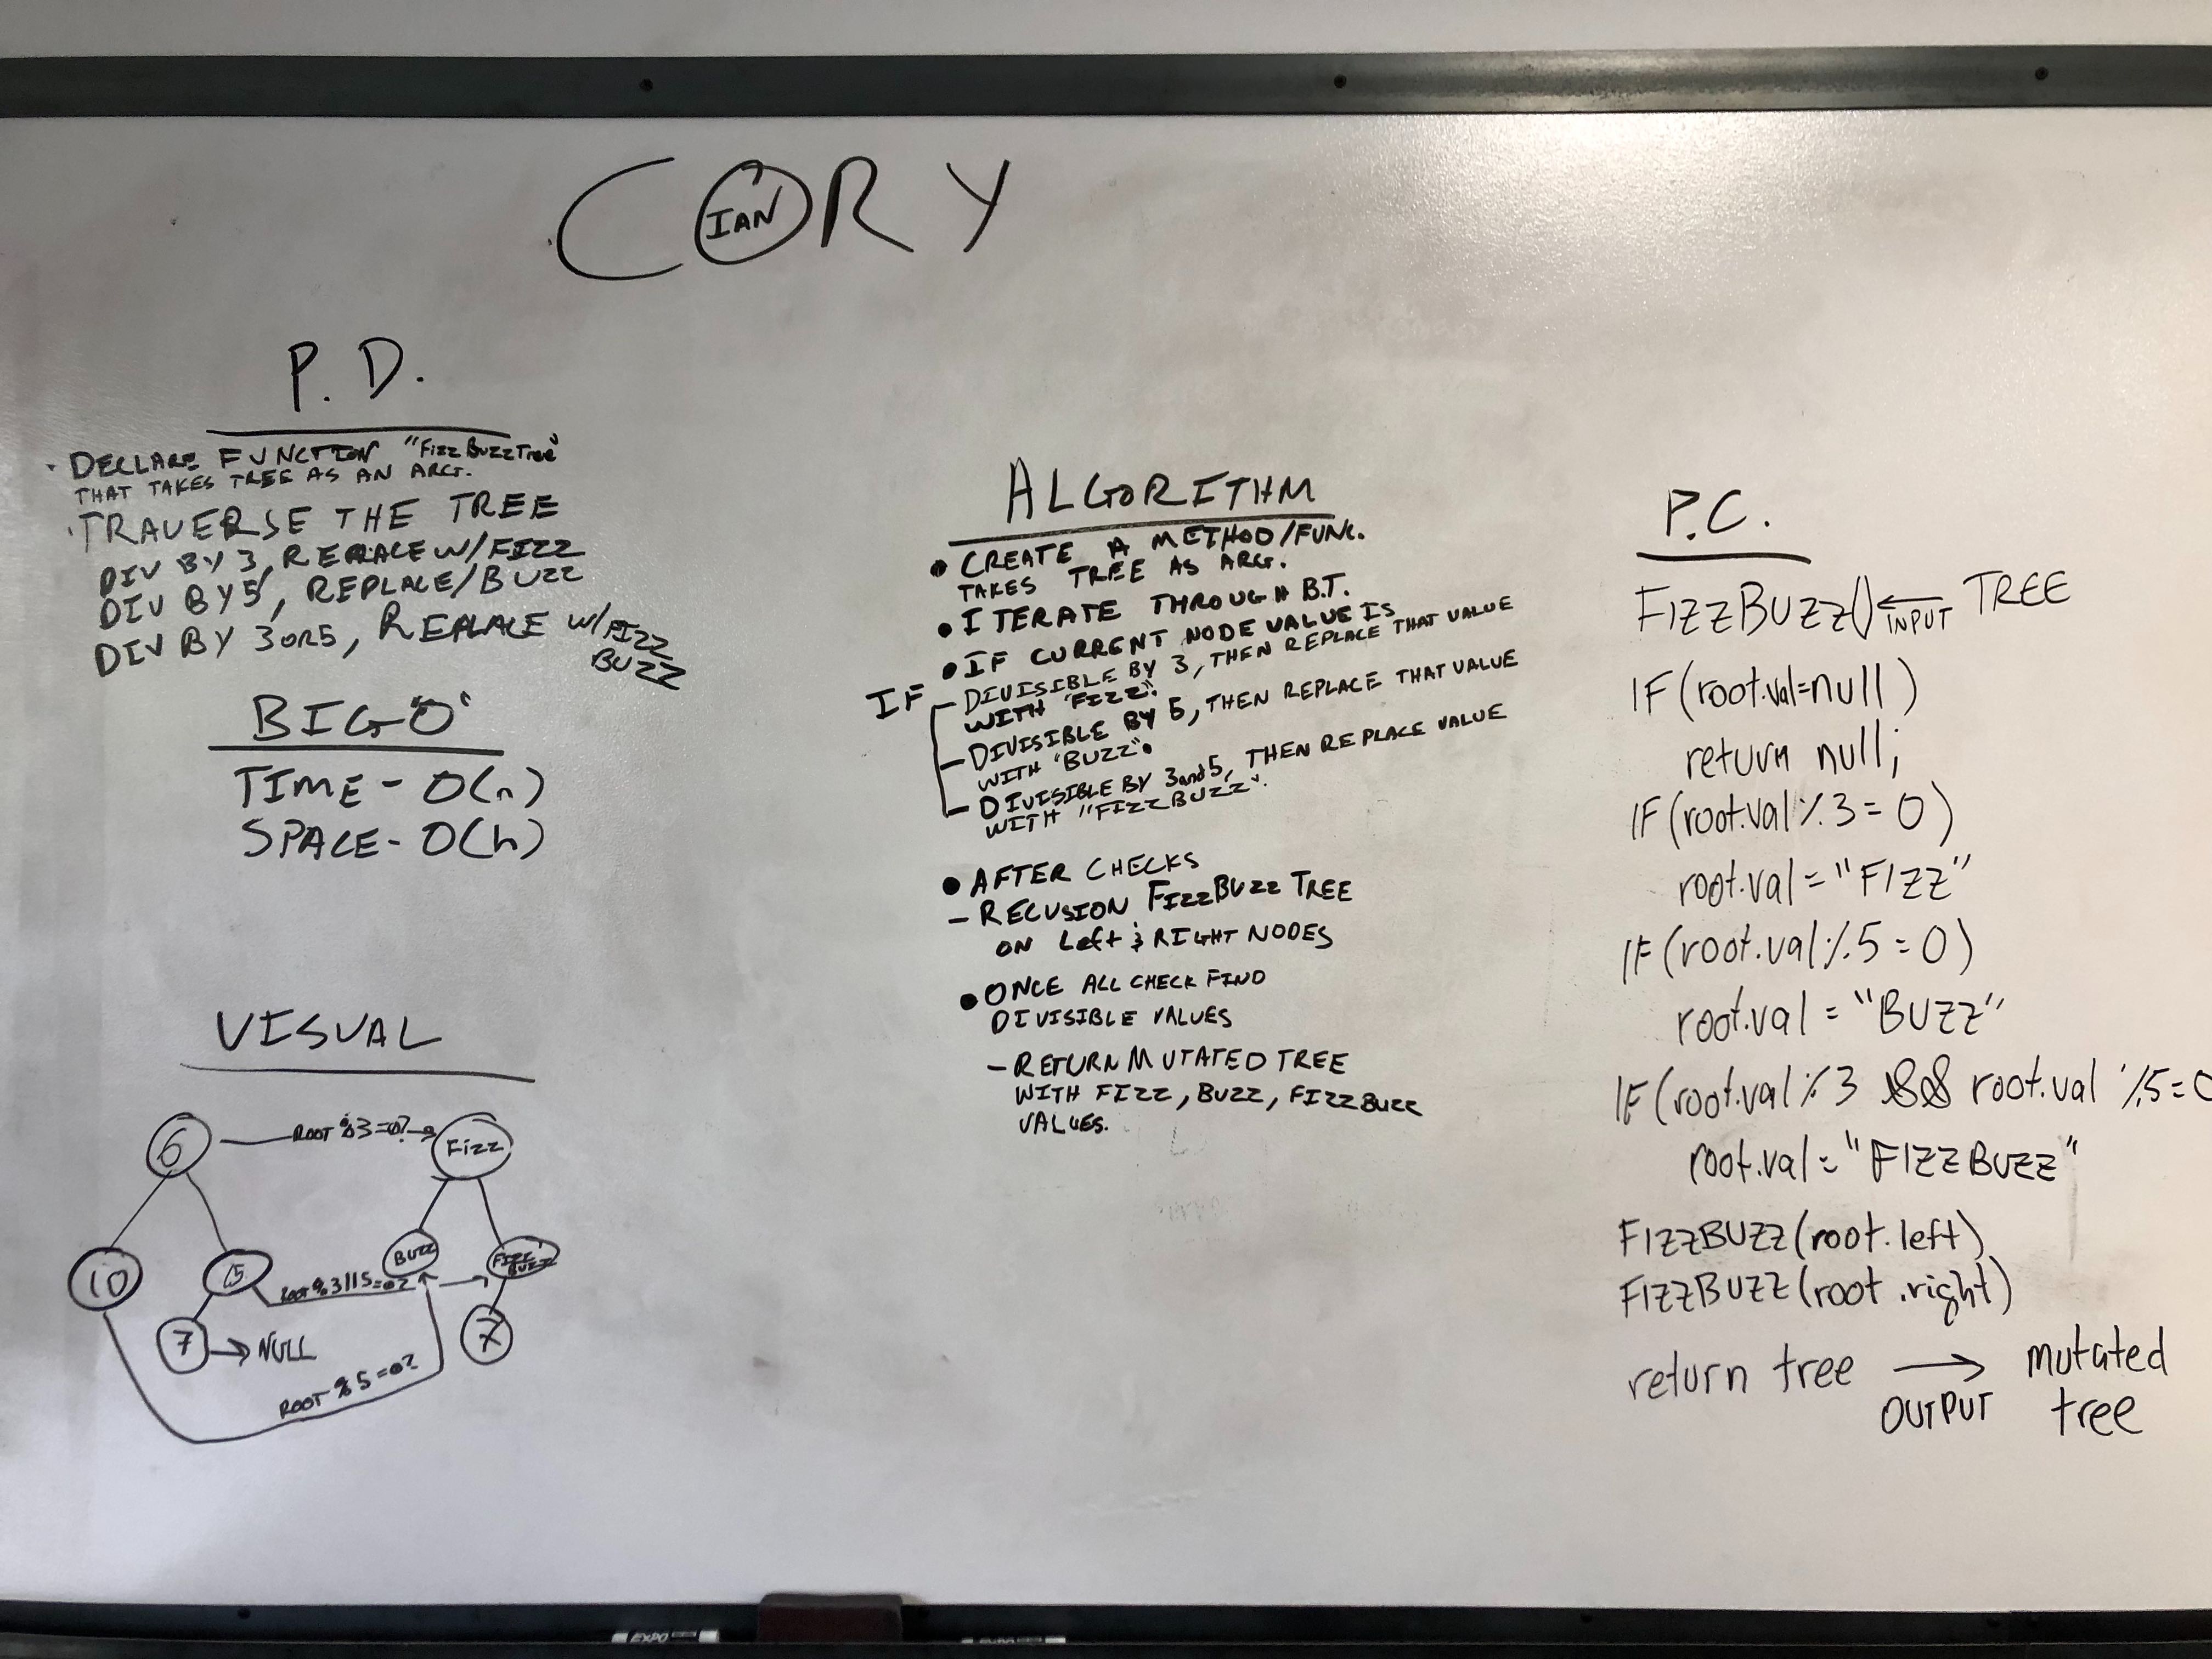 CORY
IAN
P. D.
· DECLARE FUNCTION "FizzBuzzTree"
THAT TAKES TREE AS AN ARG.
· TRAVERSE THE TREE
DIV BY 3, REPLACE W/FIZZ
DIV BY 5, REPLACE/BUZZ
DIV BY 3 OR 5, REPLACE W/FIZZ
BUZZ
BIG "O"
TIME - O(n)
SPACE - O(h)
VISUAL
6 ROOT %3=0? Fizz
10 15 ROOT %3||5=0? BUZZ FIZZ BUZZ
7 → NULL 7
ROOT %5=0?
ALGORITHM
• CREATE A METHOD/FUNC.
TAKES TREE AS ARG.
• ITERATE THROUGH B.T.
• IF CURRENT NODE VALUE IS
IF - DIVISIBLE BY 3, THEN REPLACE THAT VALUE
WITH "FIZZ".
- DIVISIBLE BY 5, THEN REPLACE THAT VALUE
WITH "BUZZ".
- DIVISIBLE BY 3 and 5, THEN REPLACE VALUE
WITH "FIZZBUZZ".
• AFTER CHECKS
- RECUSION FIZZBUZZ TREE
ON Left & RIGHT NODES
• ONCE ALL CHECK FIND
DIVISIBLE VALUES
- RETURN MUTATED TREE
WITH FIZZ, BUZZ, FIZZBUZZ
VALUES.
P.C.
FIZZBUZZ() ← INPUT TREE
IF (root.val=null)
return null;
IF (root.val % 3 = 0)
root.val = "FIZZ"
IF (root.val % 5 = 0)
root.val = "BUZZ"
IF (root.val % 3 && root.val % 5 = 0
root.val = "FIZZBUZZ"
FIZZBUZZ (root.left)
FIZZBUZZ (root.right)
return tree → OUTPUT mutated
tree
EXPO
EXPO